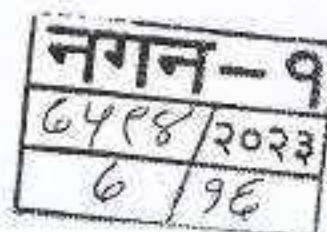 नगन-१
७५९४/२०२३
७/१६